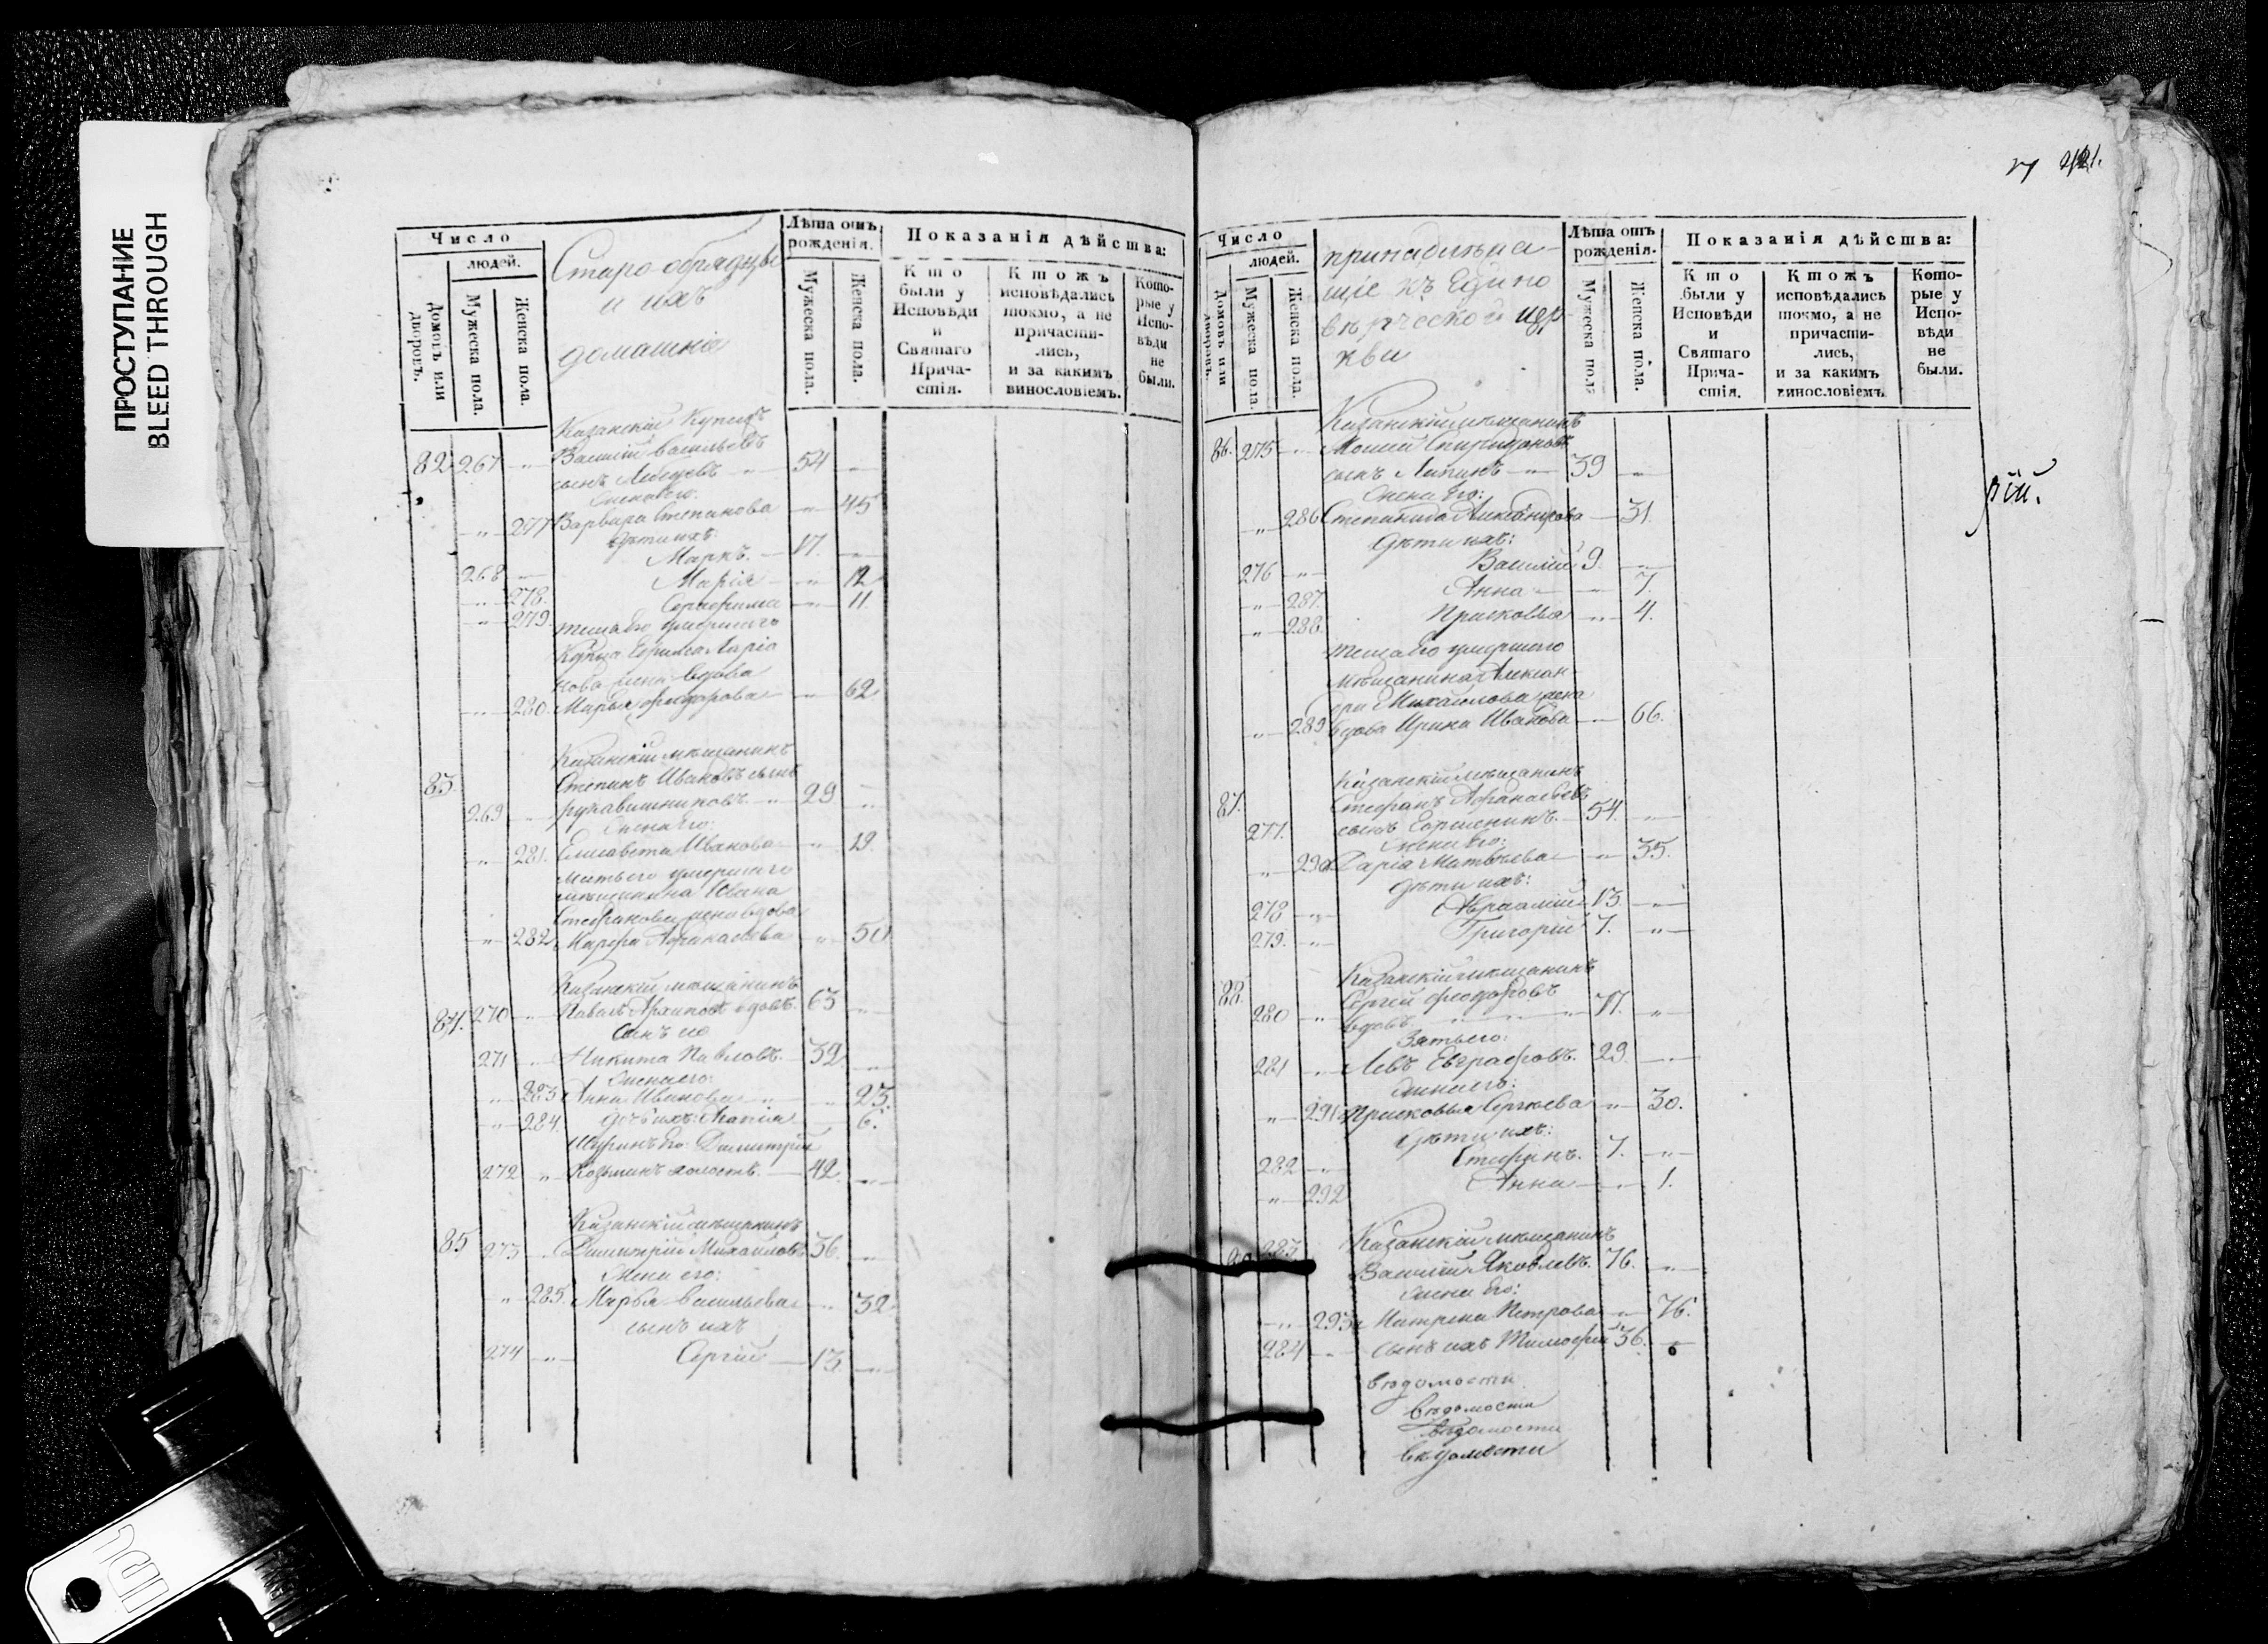 ПРОСТУПАНИЕ
BLEED THROUGH
Число
людей.
Домовъ или дворовъ.
Мужеска пола.
Женска пола.
Старообрядцы
и ихъ
домашніе
Лѣта отъ рожденія.
Мужеска пола.
Женска пола.
Показанія дѣйства:
Кто были у Исповѣди и Святаго Причастія.
Ктожъ исповѣдались токмо, а не причастились, и за какимъ винословіемъ.
Которые у Исповѣди не были.
Казанскій Купецъ
82. 267 „ Василій Васильевъ
сынъ Лебедевъ 54 „
Жена его:
„ 277 Варвара Степанова „ 45
Дѣти ихъ:
268 „ Маркъ. 17. „
„ 278. Марія „ 12
„ 279. Серафима „ 11.
теща его умершаго
Купца Ефима Ларіо
нова жена вдова
„ 280. Марья Федорова „ 62
Казанскій мѣщанинъ
83. Степанъ Ивановъ сынъ
269 „ Рукавишниковъ „ 29 „
Жена его:
„ 281. Елисавета Иванова „ 19.
мать его умершаго
мѣщанина Ивана
Стефанова жена вдова
„ 282. Марфа Афанасьева „ 50
Казанскій мѣщанинъ
84. 270 „ Павелъ Архиповъ вдовъ. 63 „
Сынъ его
271 „ Никита Павловъ. 32 „
Жена его:
„ 283 Анна Иванова „ 23.
„ 284. Дочь ихъ: 6.
Шуринъ Его: Димитрій
272 „ Козьминъ холостъ. 42. „
Казанскій мѣщанинъ
85 273 „ Димитрій Михайловъ 36. „
Жена его:
„ 285. Марья Васильева „ 32
сынъ ихъ
274 „ Сергій 13 „
221.
Число
людей.
Домовъ или дворовъ.
Мужеска пола.
Женска пола.
принадлежа
щіе къ Едино
вѣрческой цер
кви
Лѣта отъ рожденія.
Мужеска пола
Женска пола.
Показанія дѣйства:
Кто были у Исповѣди и Святаго Причастія.
Ктожъ исповѣдались токмо, а не причастились, и за какимъ винословіемъ
Которые у Исповѣди не были.
Казанскій мѣщанинъ
86. 275 „ Моисей Спиридоновъ
сынъ Лапинъ „ 39 „
Жена Его:
„ 286 Степанида Александрова 31.
Дѣти ихъ:
276 „ Василій 9. „
„ 287. Анна „ 7.
„ 288. Прасковья „ 4.
теща Его умершаго
мѣщанина Алексан
дра Михайлова жена
„ 289 вдова Ирина Иванова „ 66.
Казанскій мѣщанинъ
87. Стефанъ Афанасьевъ
277. сынъ 54. „
Жена Его:
„ 290 Дарія Матвѣева „ 35.
Дѣти ихъ:
278 „ Авраамій 13. „
279. „ Григорій 7. „
Казанскій мѣщанинъ
88. Сергій Феодоровъ
280 „ вдовъ „ 77. „
Зять его:
281 „ Левъ Евграфовъ. 29 „
Жена его:
„ 291 Прасковья Сергѣева „ 30.
Дѣти ихъ:
282 „ Стефанъ. 7. „
„ 292 Анна „ 1.
Казанскій мѣщанинъ
283 Василій Яковлевъ. 76. „
Жена Его:
„ 293 Матрена Петрова „ 76.
284 „ Сынъ ихъ Тимофей 36.
вѣдомости
вѣдомости
вѣдомости
вѣдомости
рій.